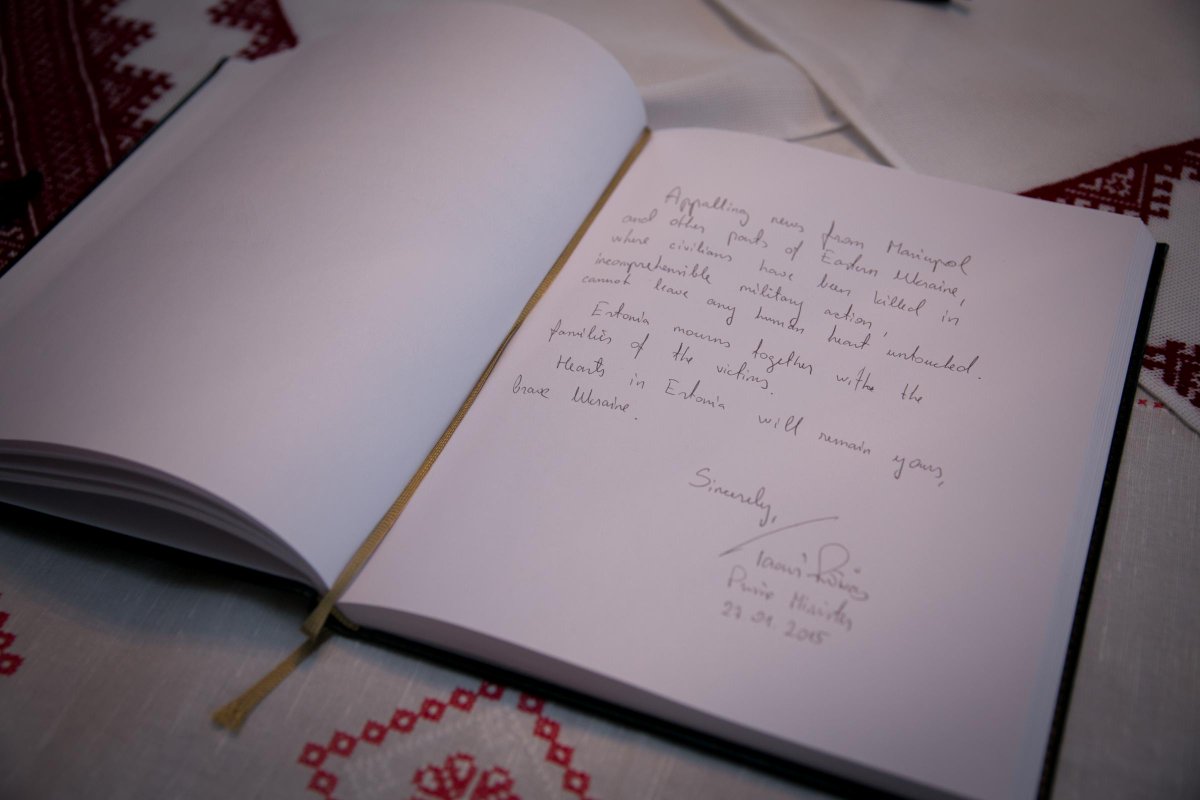 Appalling news from Mariupol
and other parts of Eastern Ukraine,
where civilians have been killed in
incomprehensible military action,
cannot leave any human heart untouched.
Estonia mourns together withe the
families of the victims.
Hearts in Estonia will remain yours,
brave Ukraine.
Sincerely,
Taavi Rõivas
Prime Minister
27.01.2015